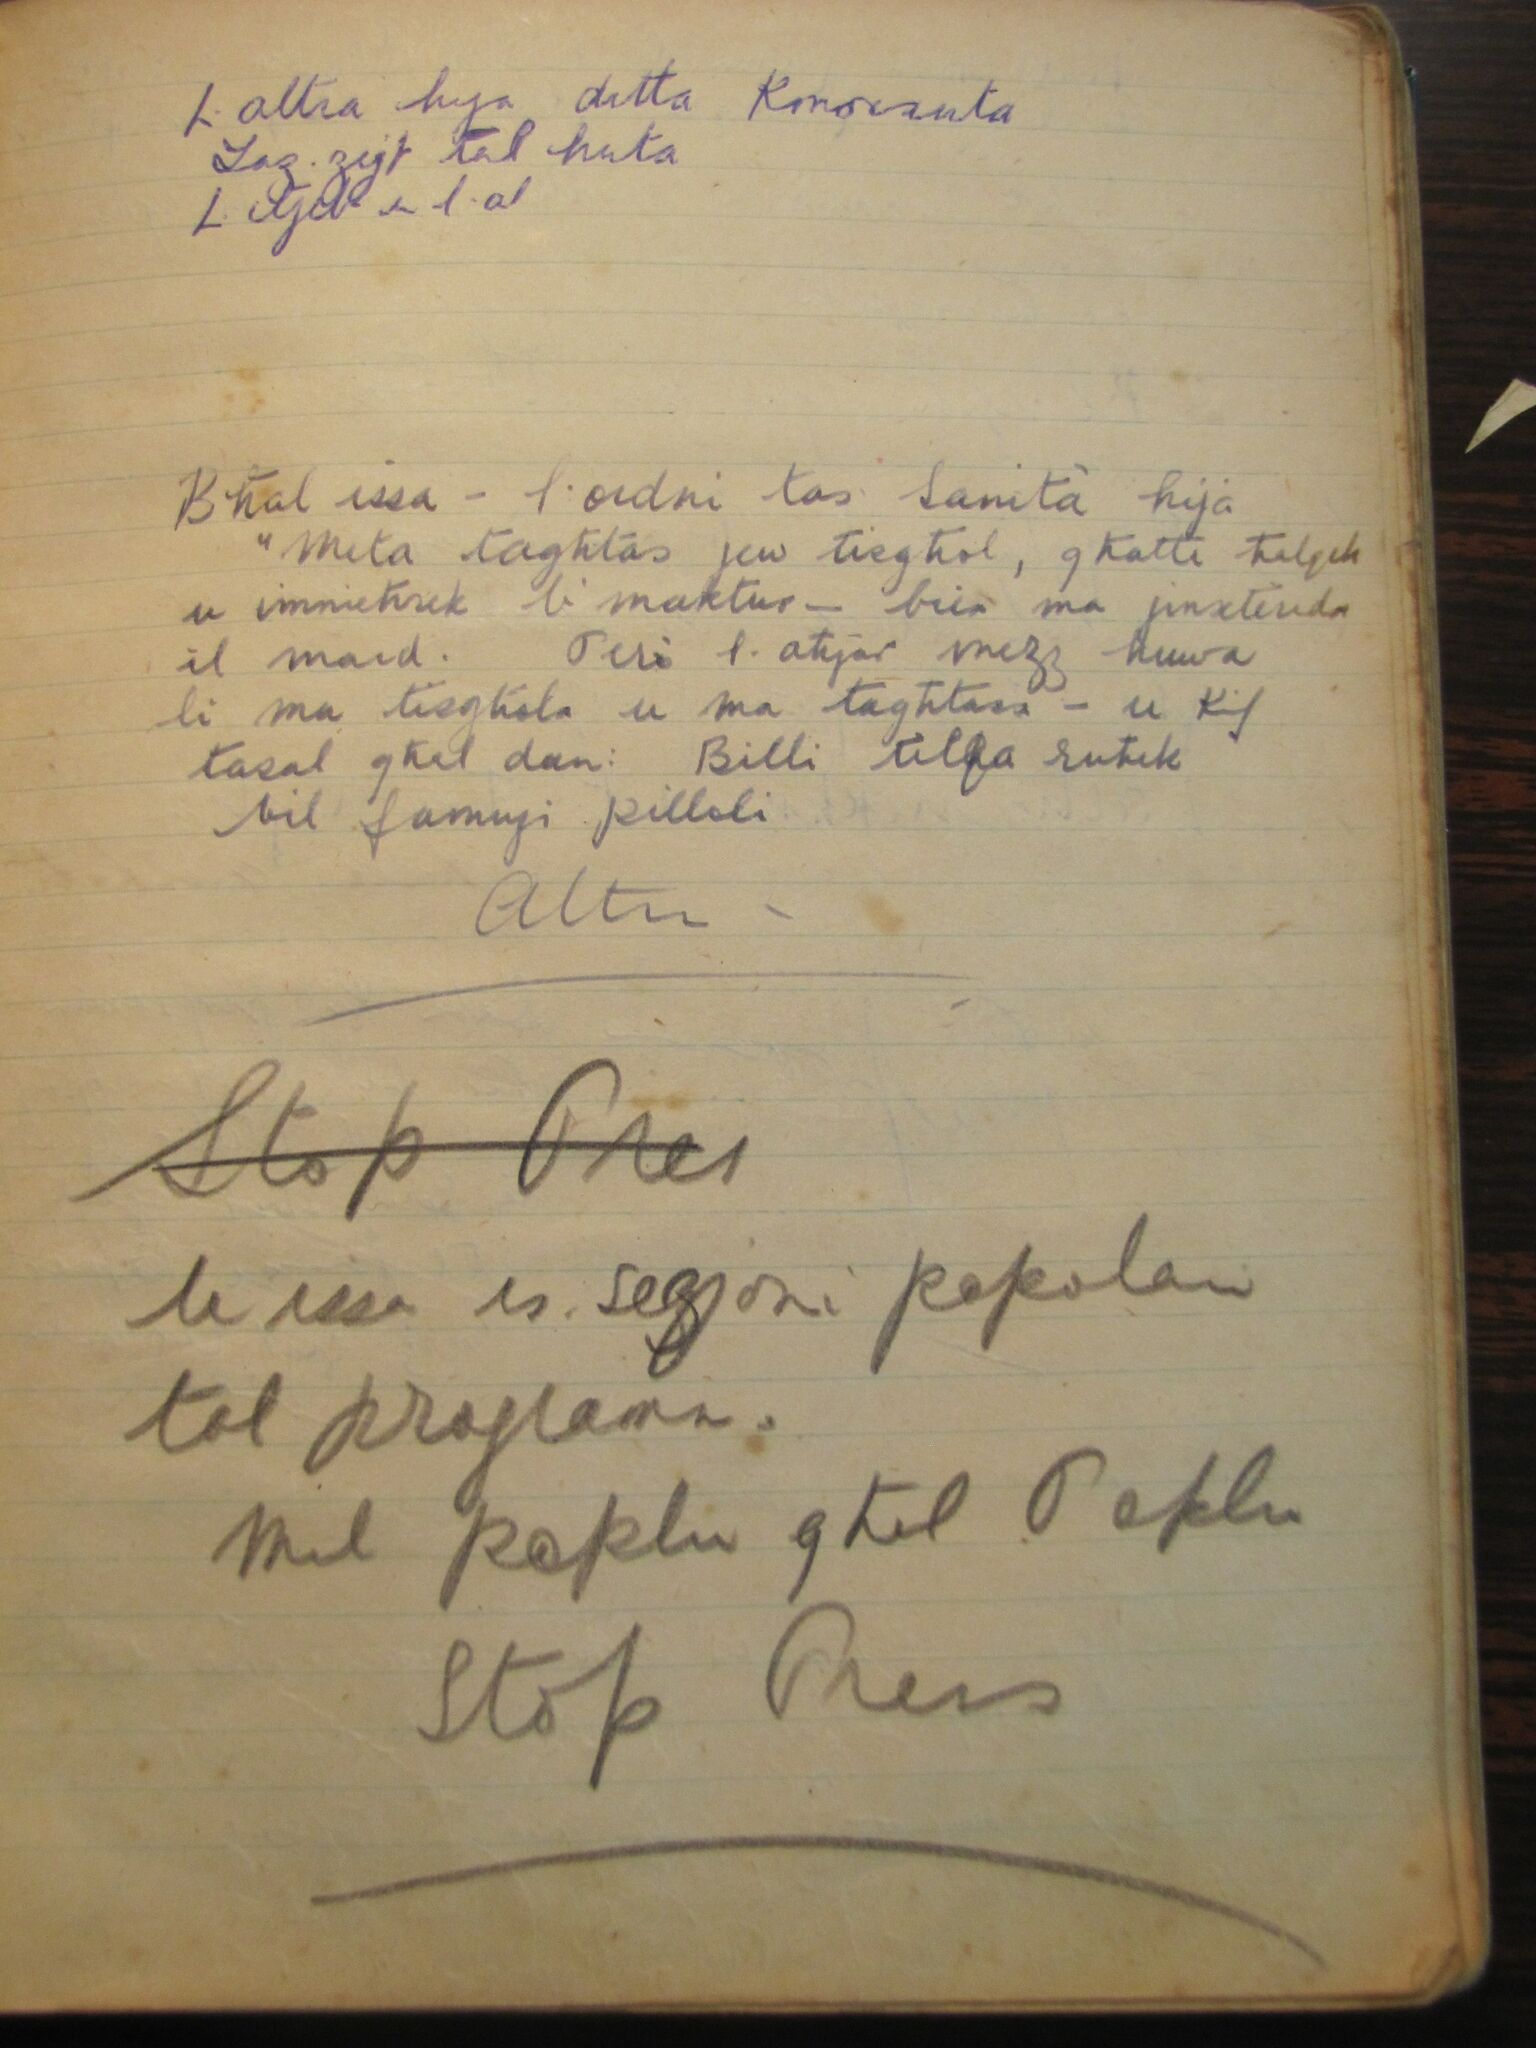 L. altra hija ditta Konoxxuta
Taz. zejt tal huta
L. u l. al
Bħal issa - l. ordni tas. Sanità hija
"Meta tagħtas jew tisgħol, għatti ħalqek
u imnieħrek b' maktur - biex ma jinxteridx
il mard. Peró l. aħjar mezz huwa
li ma tisgħolx u ma tagħtasx - u Kif
tasal għel dan: Billi tilqa ruħek
bil famużi pilloli
Altru -
Stop Pres
U issa is. sezzjoni popolari
tal programm.
Mil poplu għel Poplu
Stop Press